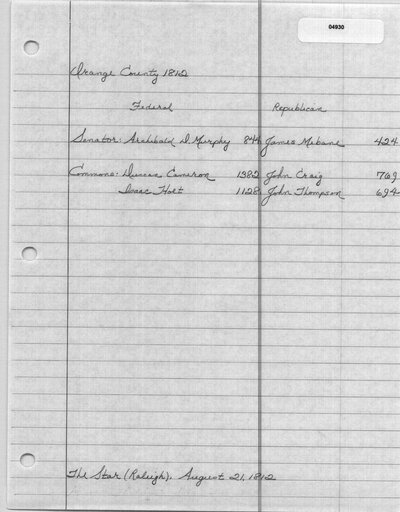 04930
Orange County 1812
Federal Republican
Senator: Archibald D Murphy 844 James Mebane 424
Commons: Duncan Cameron 1382 John Craig 769
Isaac Holt 1128 John Thompson 694
The Star (Raleigh), August 21, 1812